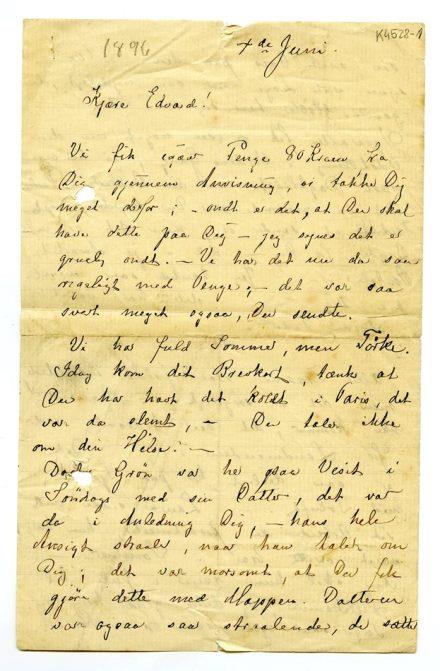 1896
K4528-1
4de Juni.
Kjære Edvard!
Vi fik igaar Penge 80 Kroner fra
Dig gjennem Anvisning, vi takke Dig
meget derfor; – ondt er det, at Du skal
have dette paa Dig – jeg synes det er
gruelig ondt. – Vi har det nu da saa
rigeligt med Penge, – det var saa
svært meget ogsaa, Du sendte.
Vi har fuld Sommer, men Tørke.
Idag kom dit Brevkort, tænk at
Du har havt det koldt i Paris, det
var da slemt, – Du taler ikke
om din Helse! –
Grøn var her paa Visit i
Søndags med sin Datter, det var
da i Anledning Dig, – hans hele
Ansigt straaler, naar han taler om
Dig; det var morsomt, at Du fik
gjøre dette med Mappen. Datteren
var ogsaa saa straalende, de sætte